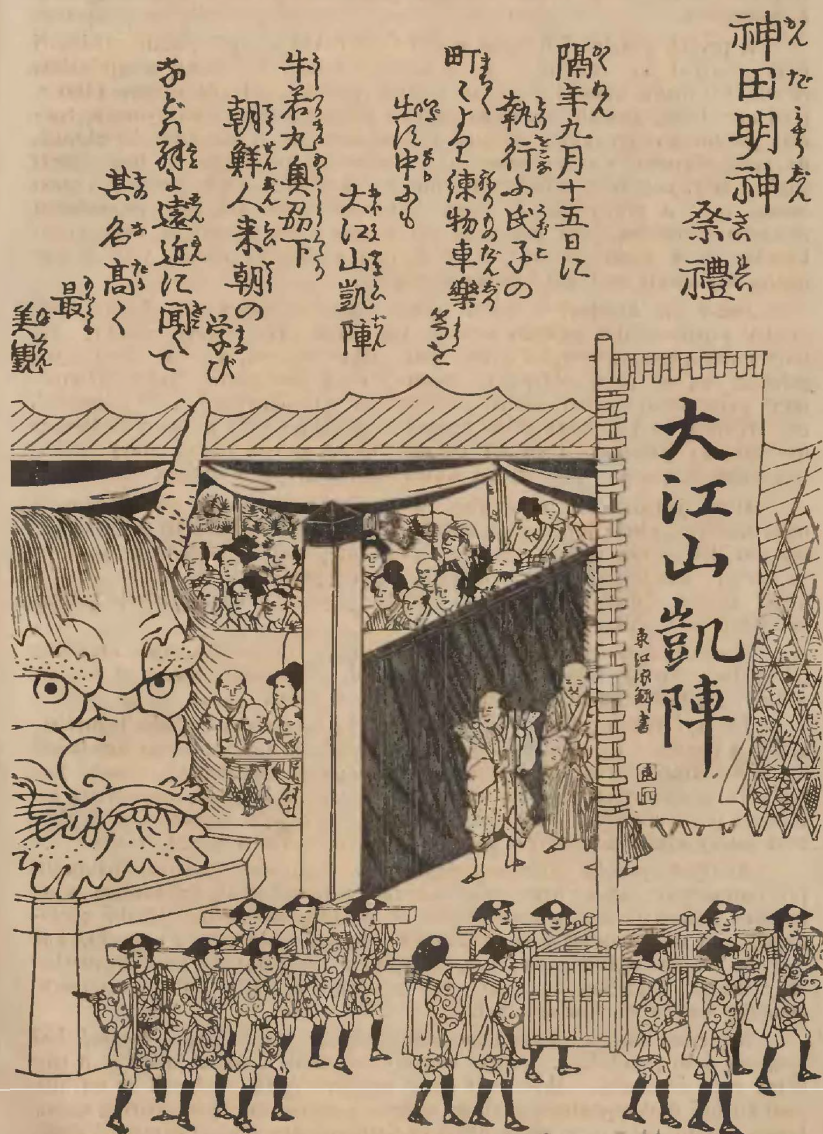 神田明神
祭禮
隔年九月十五日に
執行ふ氏子の
町〻より練物車樂
等を
出す中にも
大江山凱陣
牛若丸奥刕下
朝鮮人来朝の
学び
などハ殊に遠近に聞えて
其名高く
最
美観
大江山凱陣
東江源鱗書